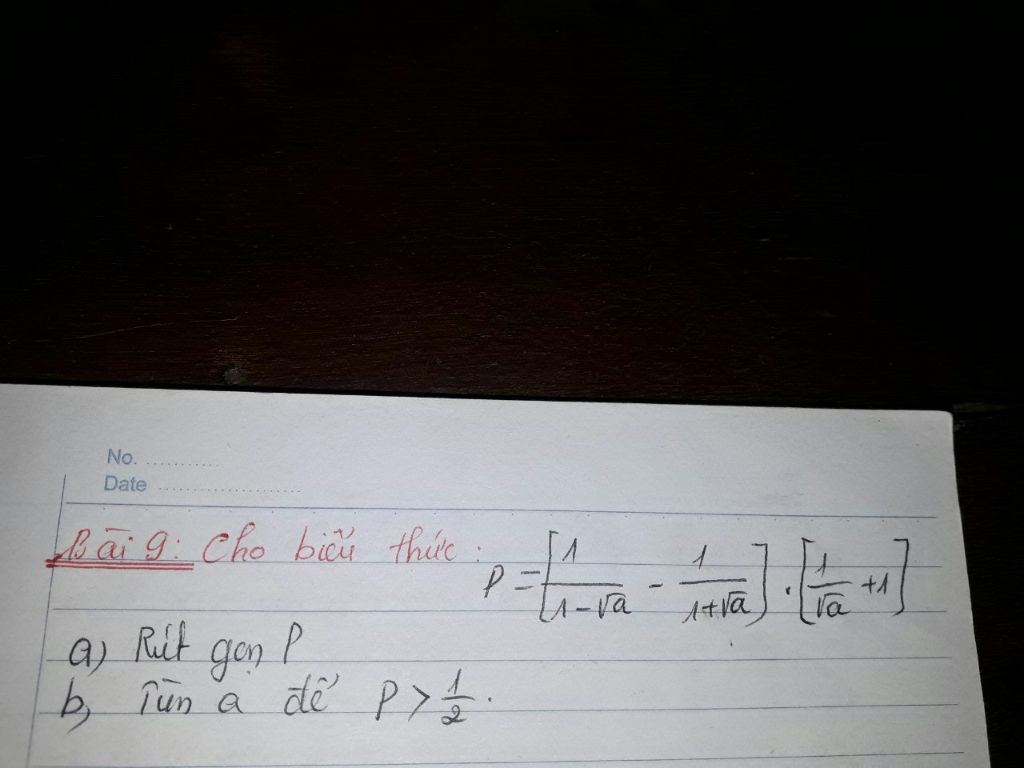 No. ...........
Date .......................
Bài 9: Cho biểu thức: P = [1/(1-√a) - 1/(1+√a)] . [1/√a + 1]
a) Rút gọn P
b, Tìm a để P > 1/2.